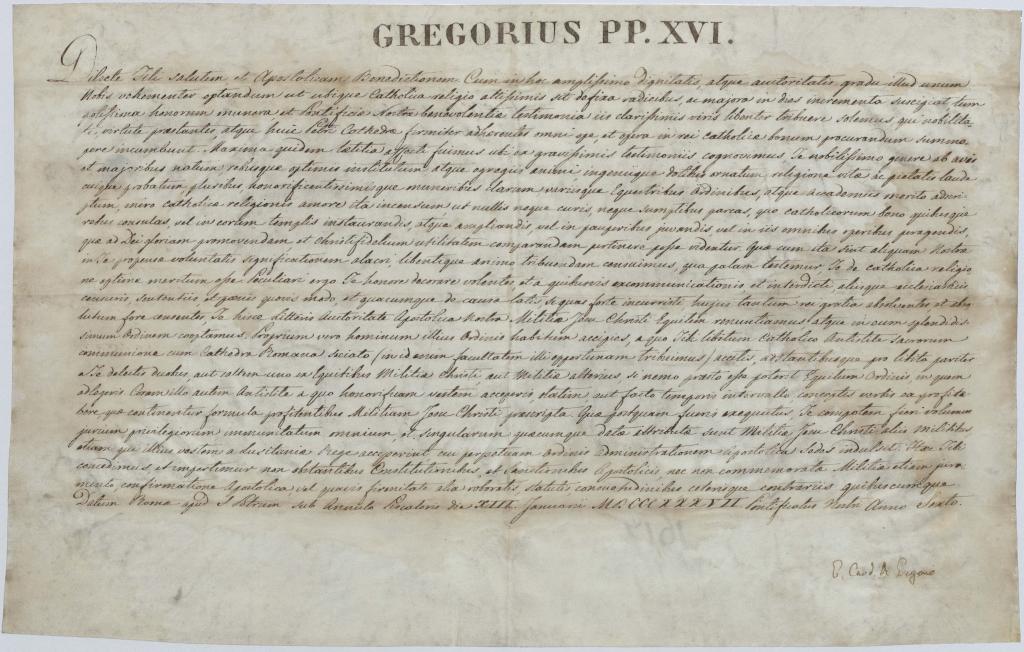 GREGORIUS PP. XVI.
Dilecte Fili salutem et Apostolicam Benedictionem. Cum in hoc amplissimo dignitatis, atque autoritatis gradu illud unum
Nobis vehementer optandum ut ubique Catholica religio altissimis sit defixa radicibus, ac majora in dies incrementa suscipiat tum
potissima honorum munera et Pontificiæ Nostræ benevolentiæ testimonia iis clarissimis viris libenter tribuere solemus, qui nobilita
te, virtute præstantes, atque huic Petri Cathedræ firmiter adhærentes omni ope, et opera in rei catholicæ bonum procurandum summo
pere incumbunt. Maxima quidem lætitia affecti fuimus ubi ex gravissimis testimoniis cognovimus, Te nobilissimo genere ab avis
et majoribus natum rebusque optimis institutum, atque egregiis animi ingeniique dotibus ornatum, religione vitæ ac pietatis laude
cuique probatum pluribus honorificentissimisque muneribus clarum variisque Equestribus Ordinibus, atque Academiis merito adscri
ptum, miro catholicæ religionis amore ita incensum ut nullis neque curis, neque sumptibus parcas, quo catholicorum bono quibusque
rebus consulas, vel in eorum templis instaurandis, atque ampliandis, vel in pauperibus juvandis, vel in iis omnibus operibus peragendis,
quæ ad Dei gloriam promovendam et Christifidelium utilitatem comparandam pertinere posse videatur. Quæ cum ita sint aliquam Nostræ
in Te propensæ voluntatis significationem alacri, libentique animo tribuendam censuimus, qua palam testemur, Te de catholica religio
ne optime meritum esse. Peculiari ergo Te honore decorare volentes, et a quibusvis excommunicationis et interdicti, aliisque ecclesiasticis
censuris, sententiis et pœnis quovis modo, et quacumque de causa latis, si quas forte incurristi hujus tantum rei gratia absolventes et abso
lutum fore censentes, Te hisce Litteris Auctoritate Apostolica Nostra Militiæ Jesu Christi Equitem renuntiamus atque in eum splendidis
simum Ordinem cooptamus. Proprium vero hominum illius Ordinis habitum accipies, a quo Tibi libitum Catholico Antistite Sacrorum
communione cum Cathedra Romana sociato (in id enim facultatem illi opportunam tribuimus) acitis, adstantibusque pro lubitu pariter
a Te delectis duobus, aut saltem uno ex Equitibus Militiæ Christi aut Militiæ alterius, si nemo præsto esse poterit Equitum Ordinis, in quem
adlegeris. Coram illo autem Antistite a quo honorificam vestem acceperis statim, aut facto temporis intervallo, conceptis verbis ea profite
bere quæ continentur formula profitentibus Militiam Jesu Christi præscripta. Quæ postquam fueris exequutus, Te compotem fieri volumus
jurium privilegiorum immunitatum omnium et singularum quæcumque data attributa sunt Militiæ Jesu Christi aliis militibus
etiam qui illius vestem a Lusitaniæ Rege acceperint cui perpetuam Ordinis administrationem Apostolica Sedes indulsit. Hæc Tibi
concedimus, et impertimur non obstantibus Constitutionibus et Sanctionibus Apostolicis nec non commemoratæ Militiæ etiam jura
mento confirmatione Apostolica, vel quavis firmitate alia roboratis, statutis, consuetudinibus ceterisque contrariis quibuscumque.
Datum Romæ apud S. Petrum sub Annulo Piscatoris die XIII. Januarii MDCCCXXXVII Pontificatus Nostri Anno Sexto.